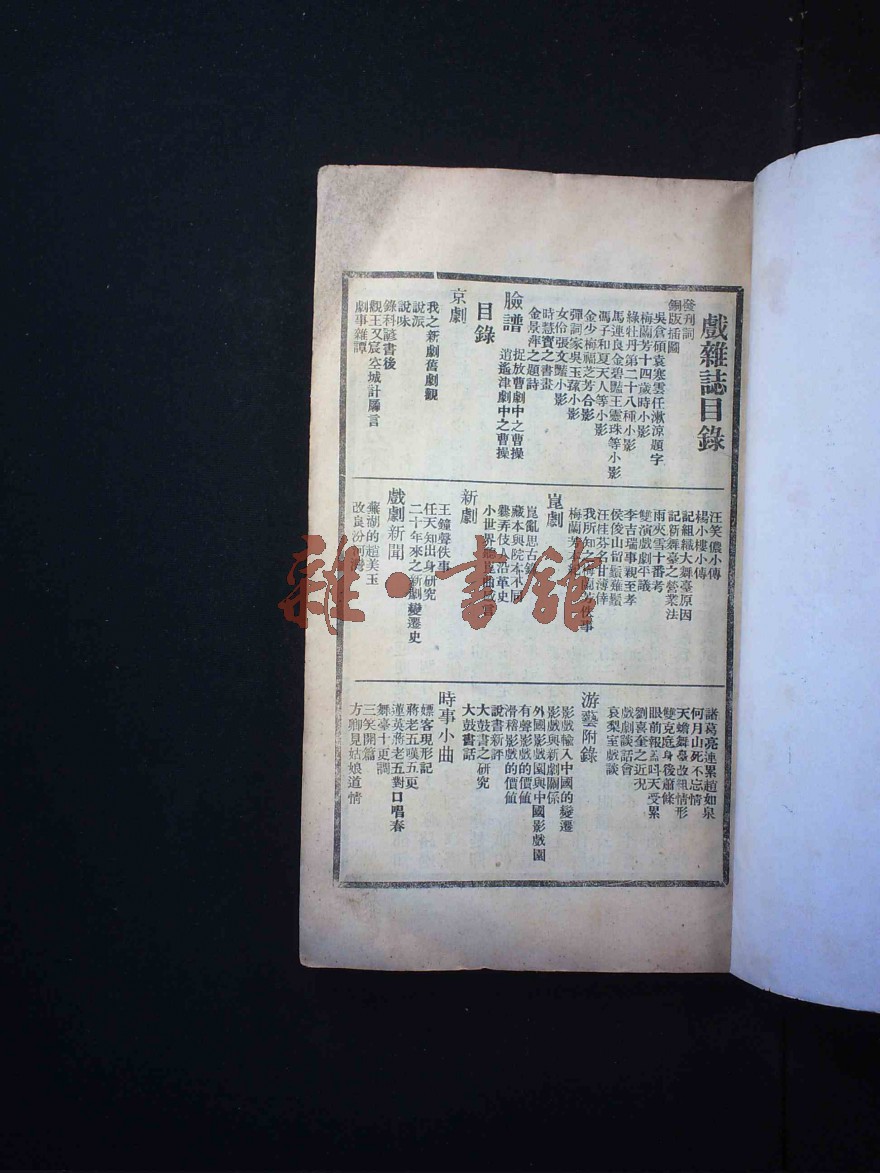 戲雜誌目錄
發刊詞
銅版插圖
吳倉碩袁寒雲任漱涼題字
梅蘭芳十四歲時小影
綠牡丹第二十八種小影
馬連良金碧豔王靈珠等小影
馮子和夏天人等小影
金少梅福芝芳合影
彈詞家吳玉蓀小影
女伶張文豔小影
時慧寶之書畫
金景萍之題詩
臉譜
捉放曹劇中之曹操
逍遙津劇中之曹操
目錄
京劇
我之新劇舊劇觀
說派
說味
錄科諺書後
觀王又宸空城計贅言
劇事雜譚
汪笑儂小傳
楊小樓小傳
記組織大舞臺原因
記新舞臺之營業法
雨夾雪二十番考
雙演戲劇平議
李吉瑞事親至孝
侯俊山留鬚難鬚
汪桂芬名甘薄倖
我所知之梅蘭芳佚事
梅蘭芳
崑劇
崑亂思古錄
藏本與院本不同
爨弄伎人沿革史
小世界聽崑曲
新劇
王鐘聲佚事
任天知出身研究
二十年來之新劇變遷史
戲劇新聞
蕪湖的趙美玉
改良汾河灣
諸葛亮連累趙如泉
何月山死不忘情
天蟾舞臺改組情形
雙克庭身後蕭條
眼前報孟叫天受累
劉喜奎之近況
戲劇談話會
哀梨室戲談
游藝附錄
影戲輸入中國的變遷
影戲與新劇關係
外國影戲園與中國影戲園
有聲影戲的價値
滑稽影戲的價値
說書新評
大鼓書之研究
大鼓書話
時事小曲
嫖客現形記
蔣老五嘆五更
蓮英蔣老五對口唱春
舞臺十更調
三笑開篇
方卿見姑娘道情
雜·書館